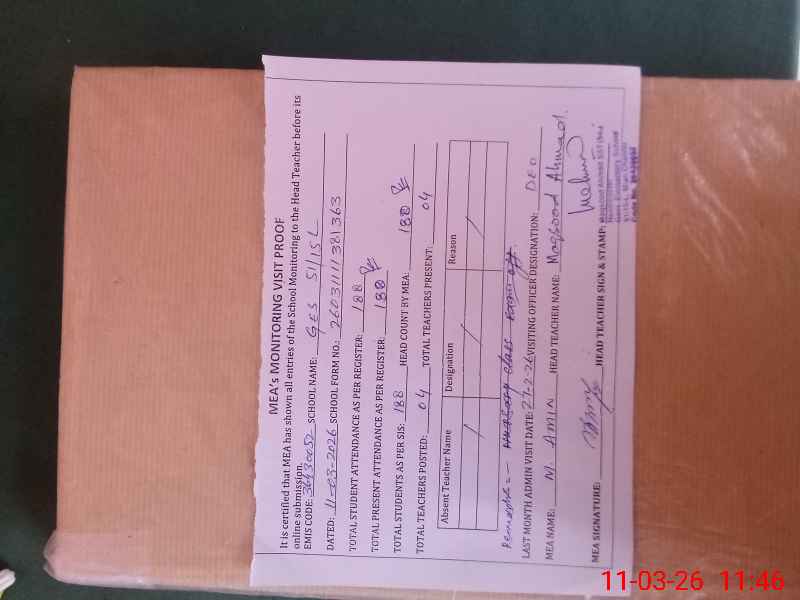 MEA's MONITORING VISIT PROOF
It is certified that MEA has shown all entries of the School Monitoring to the Head Teacher before its
online submission.
EMIS CODE: SCHOOL NAME: GES 51/15L
DATED: 11-03-2026 SCHOOL FORM NO.: 26031111381363
TOTAL STUDENT ATTENDANCE AS PER REGISTER: 188
TOTAL PRESENT ATTENDANCE AS PER REGISTER: 180
TOTAL STUDENTS AS PER SIS: 188 HEAD COUNT BY MEA: 180
TOTAL TEACHERS POSTED: 04 TOTAL TEACHERS PRESENT: 04
Absent Teacher Name Designation Reason
/ / /
Remarks:- class off.
LAST MONTH ADMIN VISIT DATE: 27-2-26 VISITING OFFICER DESIGNATION: DEO
MEA NAME: M. AMIN HEAD TEACHER NAME: Maqsood Ahmad.
MEA SIGNATURE: HEAD TEACHER SIGN & STAMP:
Maqsood Ahmad SST
11-03-26 11:46